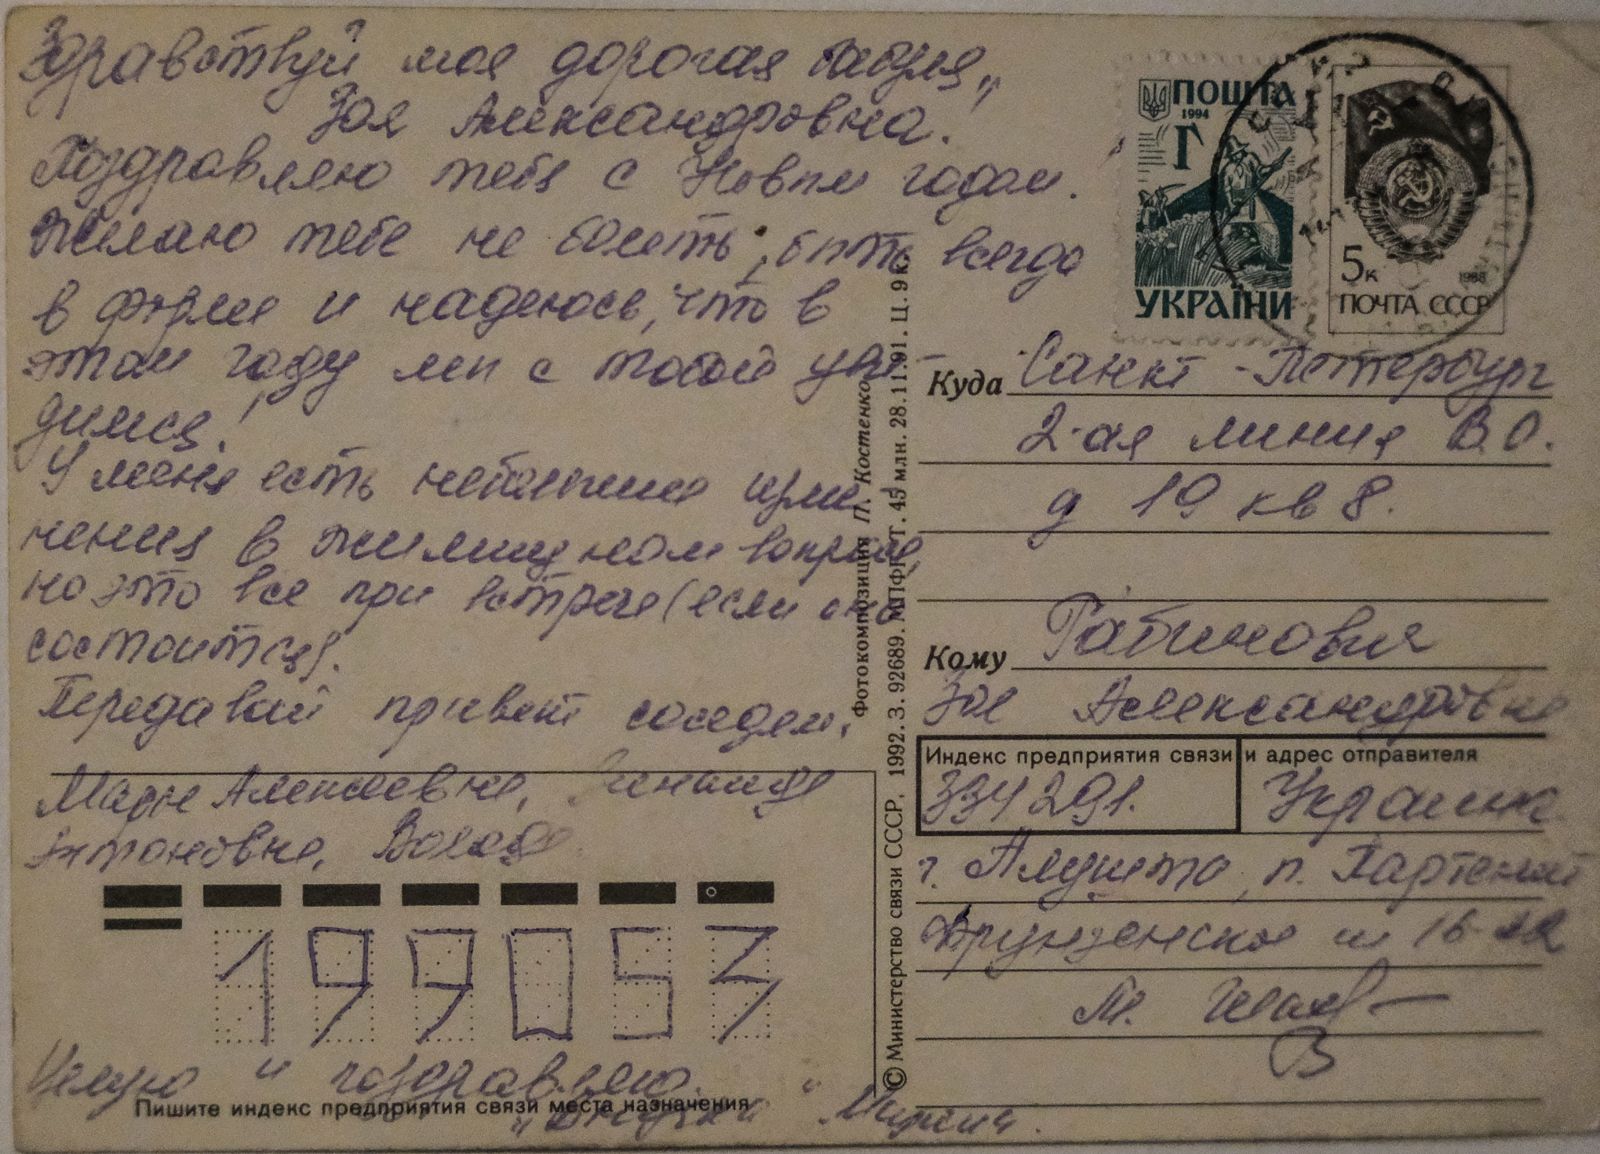 Здравствуй моя дорогая бабуля,,
Зоя Александровна.
Поздравляю тебя с Новым годом.
Желаю тебе не болеть, быть всегда
в форме и надеюсь, что в
этом году мы с тобой уви-
димся!
У меня есть небольшие изме-
нения в жилищном вопросе,
но это все при встрече (если она
состоится).
Передавай привет соседям,
Марье Алексеевне, Зинаиде
Антоновне, Володе
199053
Целую и поздравляю.
Пишите индекс предприятия связи места назначения
„внучка“ Марина.
Фотокомпозиция П. Костенко
© Министерство связи СССР, 1992. З. 92689. МПФГ. Т. 45 млн. 28.11.91. Ц. 9 к.
ПОШТА
1994
Г
УКРАЇНИ
5к
1988
ПОЧТА СССР
Куда Санкт-Петербург
2-ая линия В.О.
д 19 кв 8.
Кому Рабинович
Зое Александровне
Индекс предприятия связи и адрес отправителя
334291. Украина
г. Алушта, п. Партенит
Фрунзенское ш 16-
М.